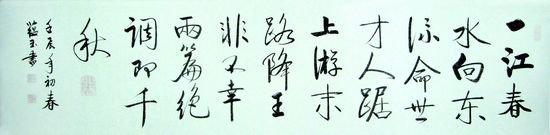 一江春
水向东
流命世
才人踞
上游末
路降王
非不幸
兩篇绝
調即千
秋
壬辰年初春